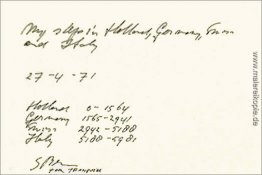 My steps in Holland, Germany,
and Italy
27-4-71
Holland 0-1564
Germany 1565-2941
2942-5188
Italy 5188-5981
www.malereikopie.de